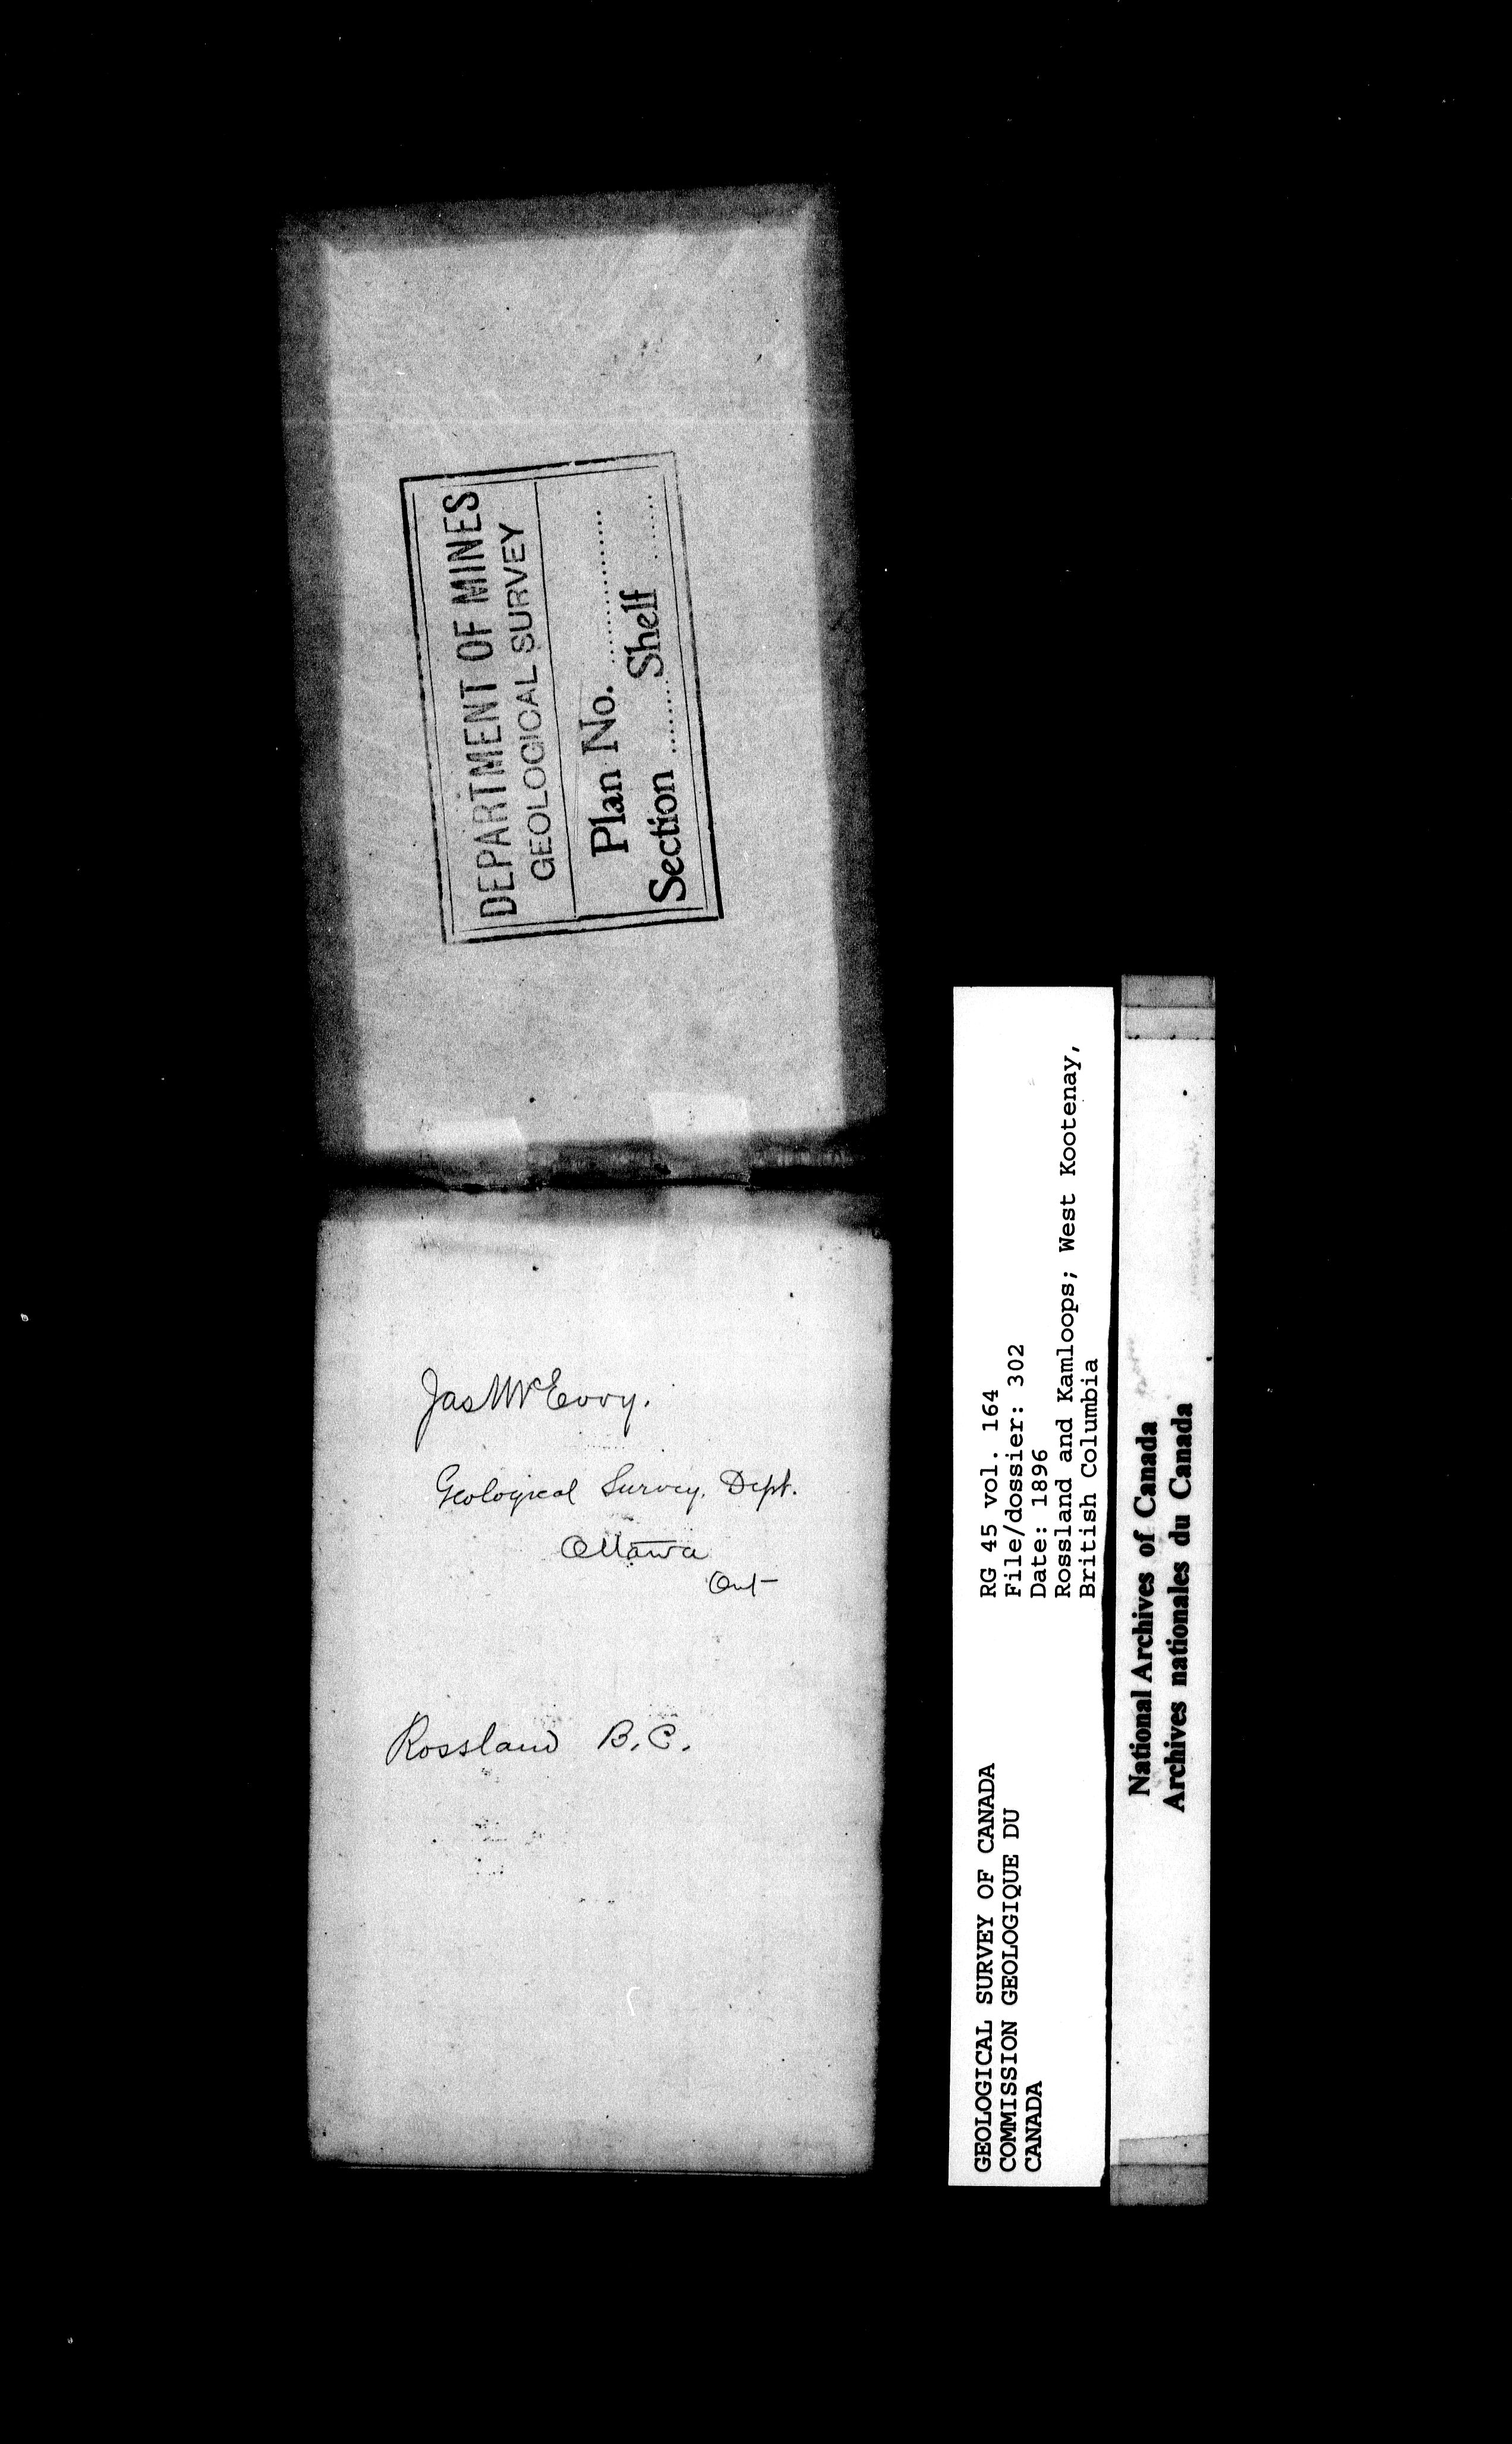 DEPARTMENT OF MINES
GEOLOGICAL SURVEY
Plan No. ..................
Section ......... Shelf .......
Jas McEvoy.
Geological Survey. Dept.
Ottawa
Ont
Rossland B.C.
GEOLOGICAL SURVEY OF CANADA
COMMISSION GEOLOGIQUE DU
CANADA
RG 45 vol. 164
File/dossier: 302
Date: 1896
Rossland and Kamloops; West Kootenay,
British Columbia
National Archives of Canada
Archives nationales du Canada